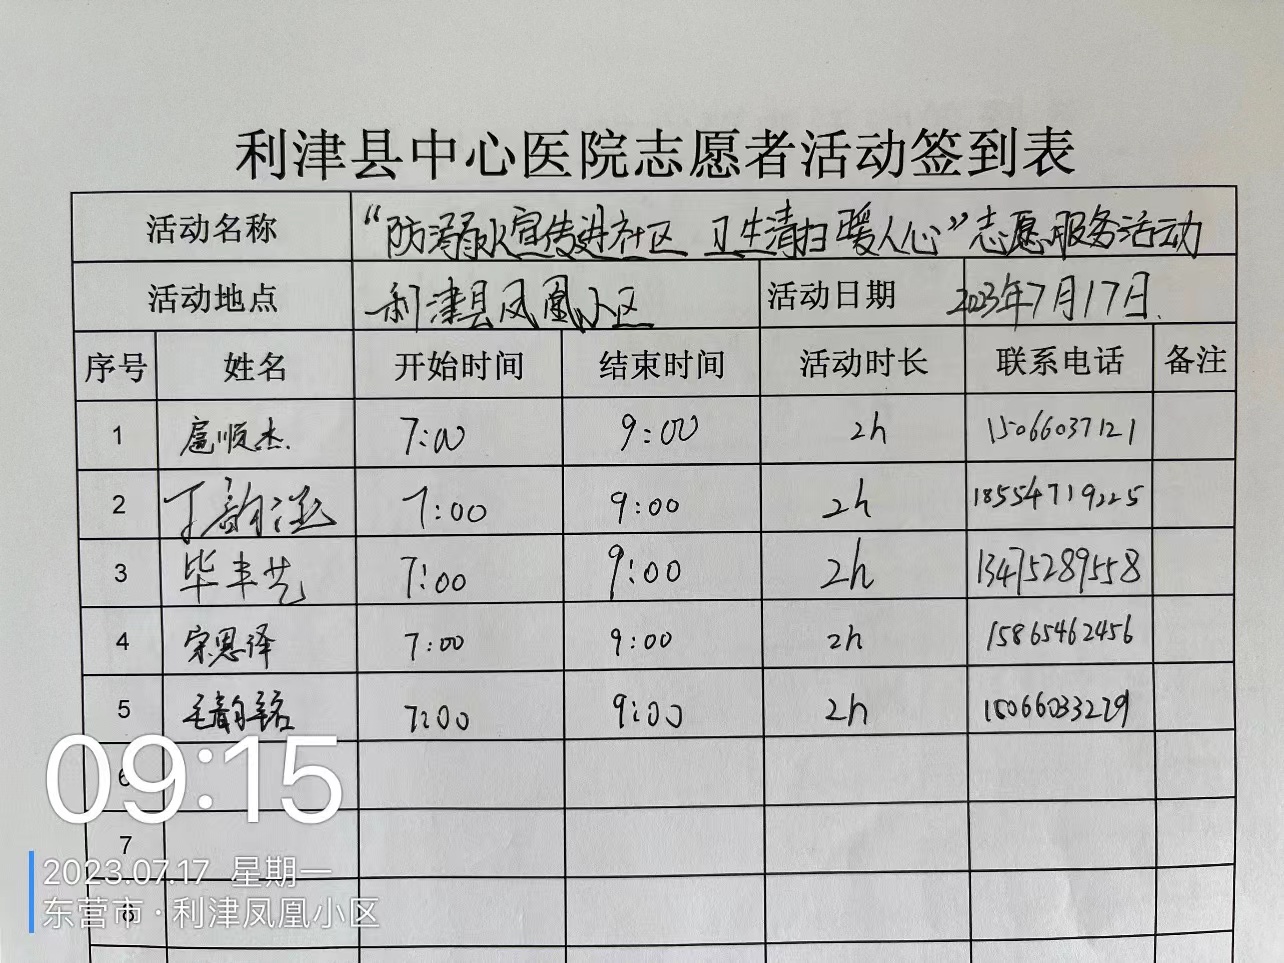 利津县中心医院志愿者活动签到表
活动名称 “防溺水宣传进社区 卫生清扫暖人心”志愿服务活动
活动地点 利津县凤凰小区 活动日期 2023年7月17日.
序号 姓名 开始时间 结束时间 活动时长 联系电话 备注
1 扈顺杰. 7:00 9:00 2h 15066037121
2 丁韵涵 7:00 9:00 2h 18554719225
3 毕丰艺 7:00 9:00 2h 13475289558
4 宋恩泽 7:00 9:00 2h 15865462456
5 毛韵 7:00 9:00 2h 15066033279
6
7
8
09:15
2023.07.17 星期一
东营市·利津凤凰小区